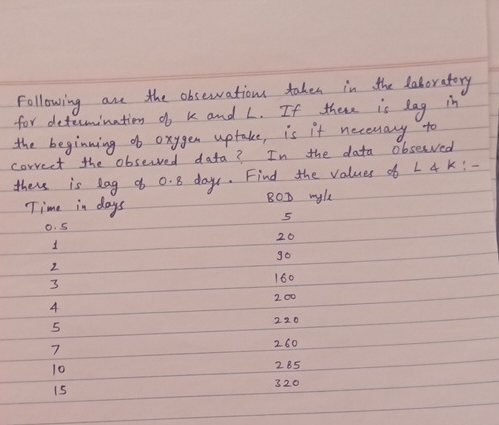 Following are the observations taken in the laboratory
for determination of K and L. If there is lag in
the beginning of oxygen uptake, is it necessary to
correct the observed data? In the data observed
there is lag of 0.8 days. Find the values of L & K:-
Time in days BOD mg/l
0.5 5
1 20
2 90
3 160
4 200
5 220
7 260
10 285
15 320